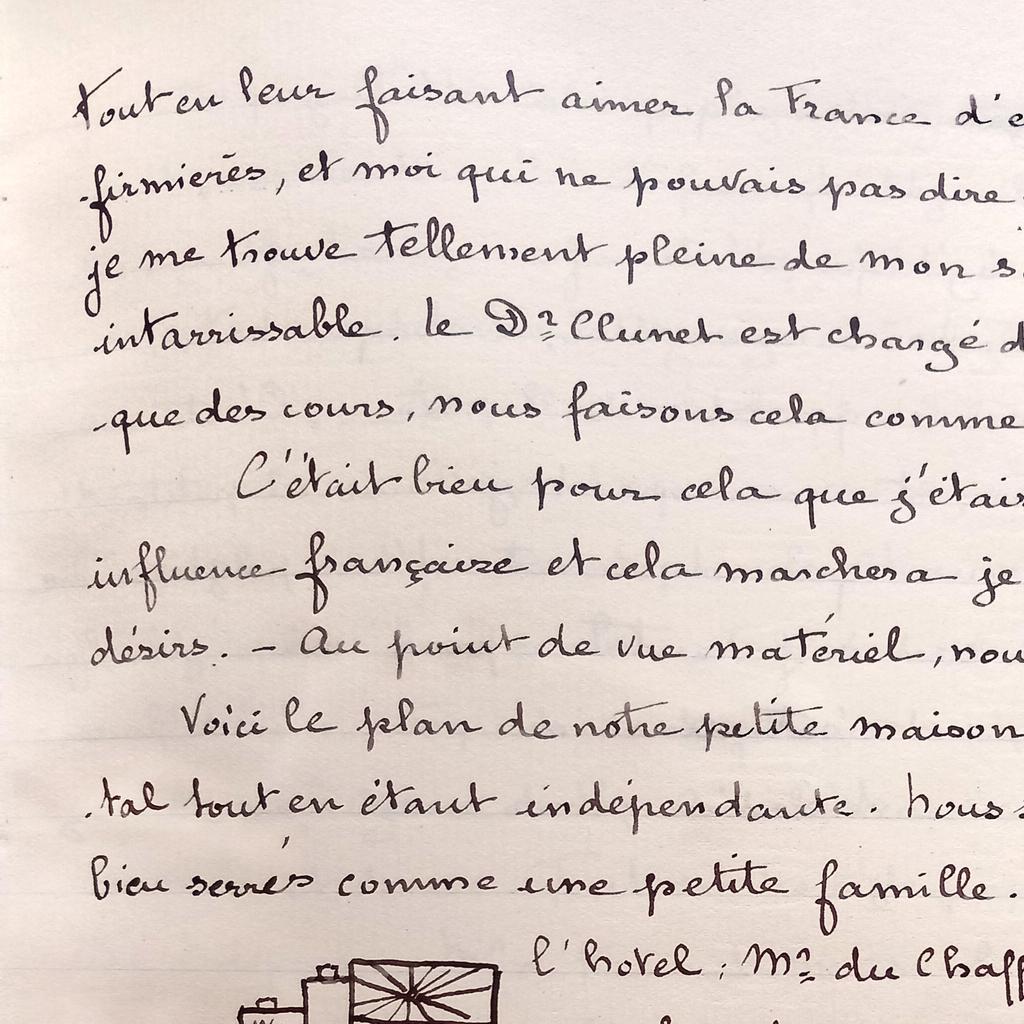 tout en leur faisant aimer la France d'e
-firmières, et moi qui ne pouvais pas dire
je me trouve tellement pleine de mon s
intarrissable. le Dr Clunet est chargé d
-que des cours, nous faisons cela comme
C'était bien pour cela que j'étais
influence française et cela marchera je
désirs. - Au point de vue matériel, nou
Voici le plan de notre petite maison
-tal tout en étant indépendante. Nous s
bien serrés comme une petite famille.
l'hotel ; Mr du Chaff